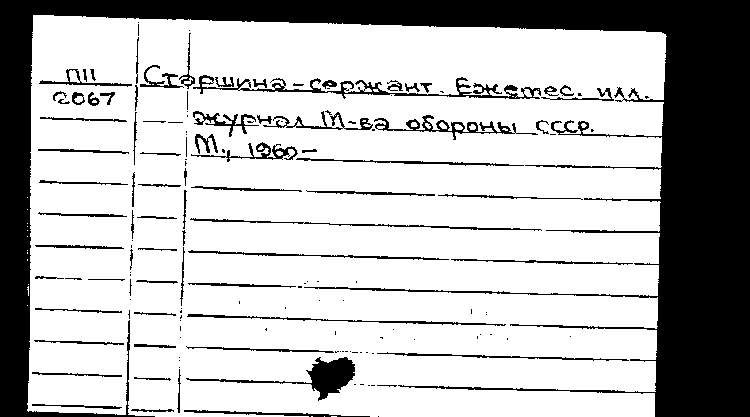 П11
2067
Старшина-сержант. Ежемес. илл.
журнал М-ва обороны СССР.
М., 1960-